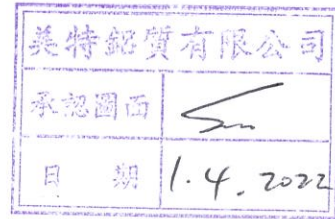 美特鋁質有限公司
承認圖面
日期 1.4.2022